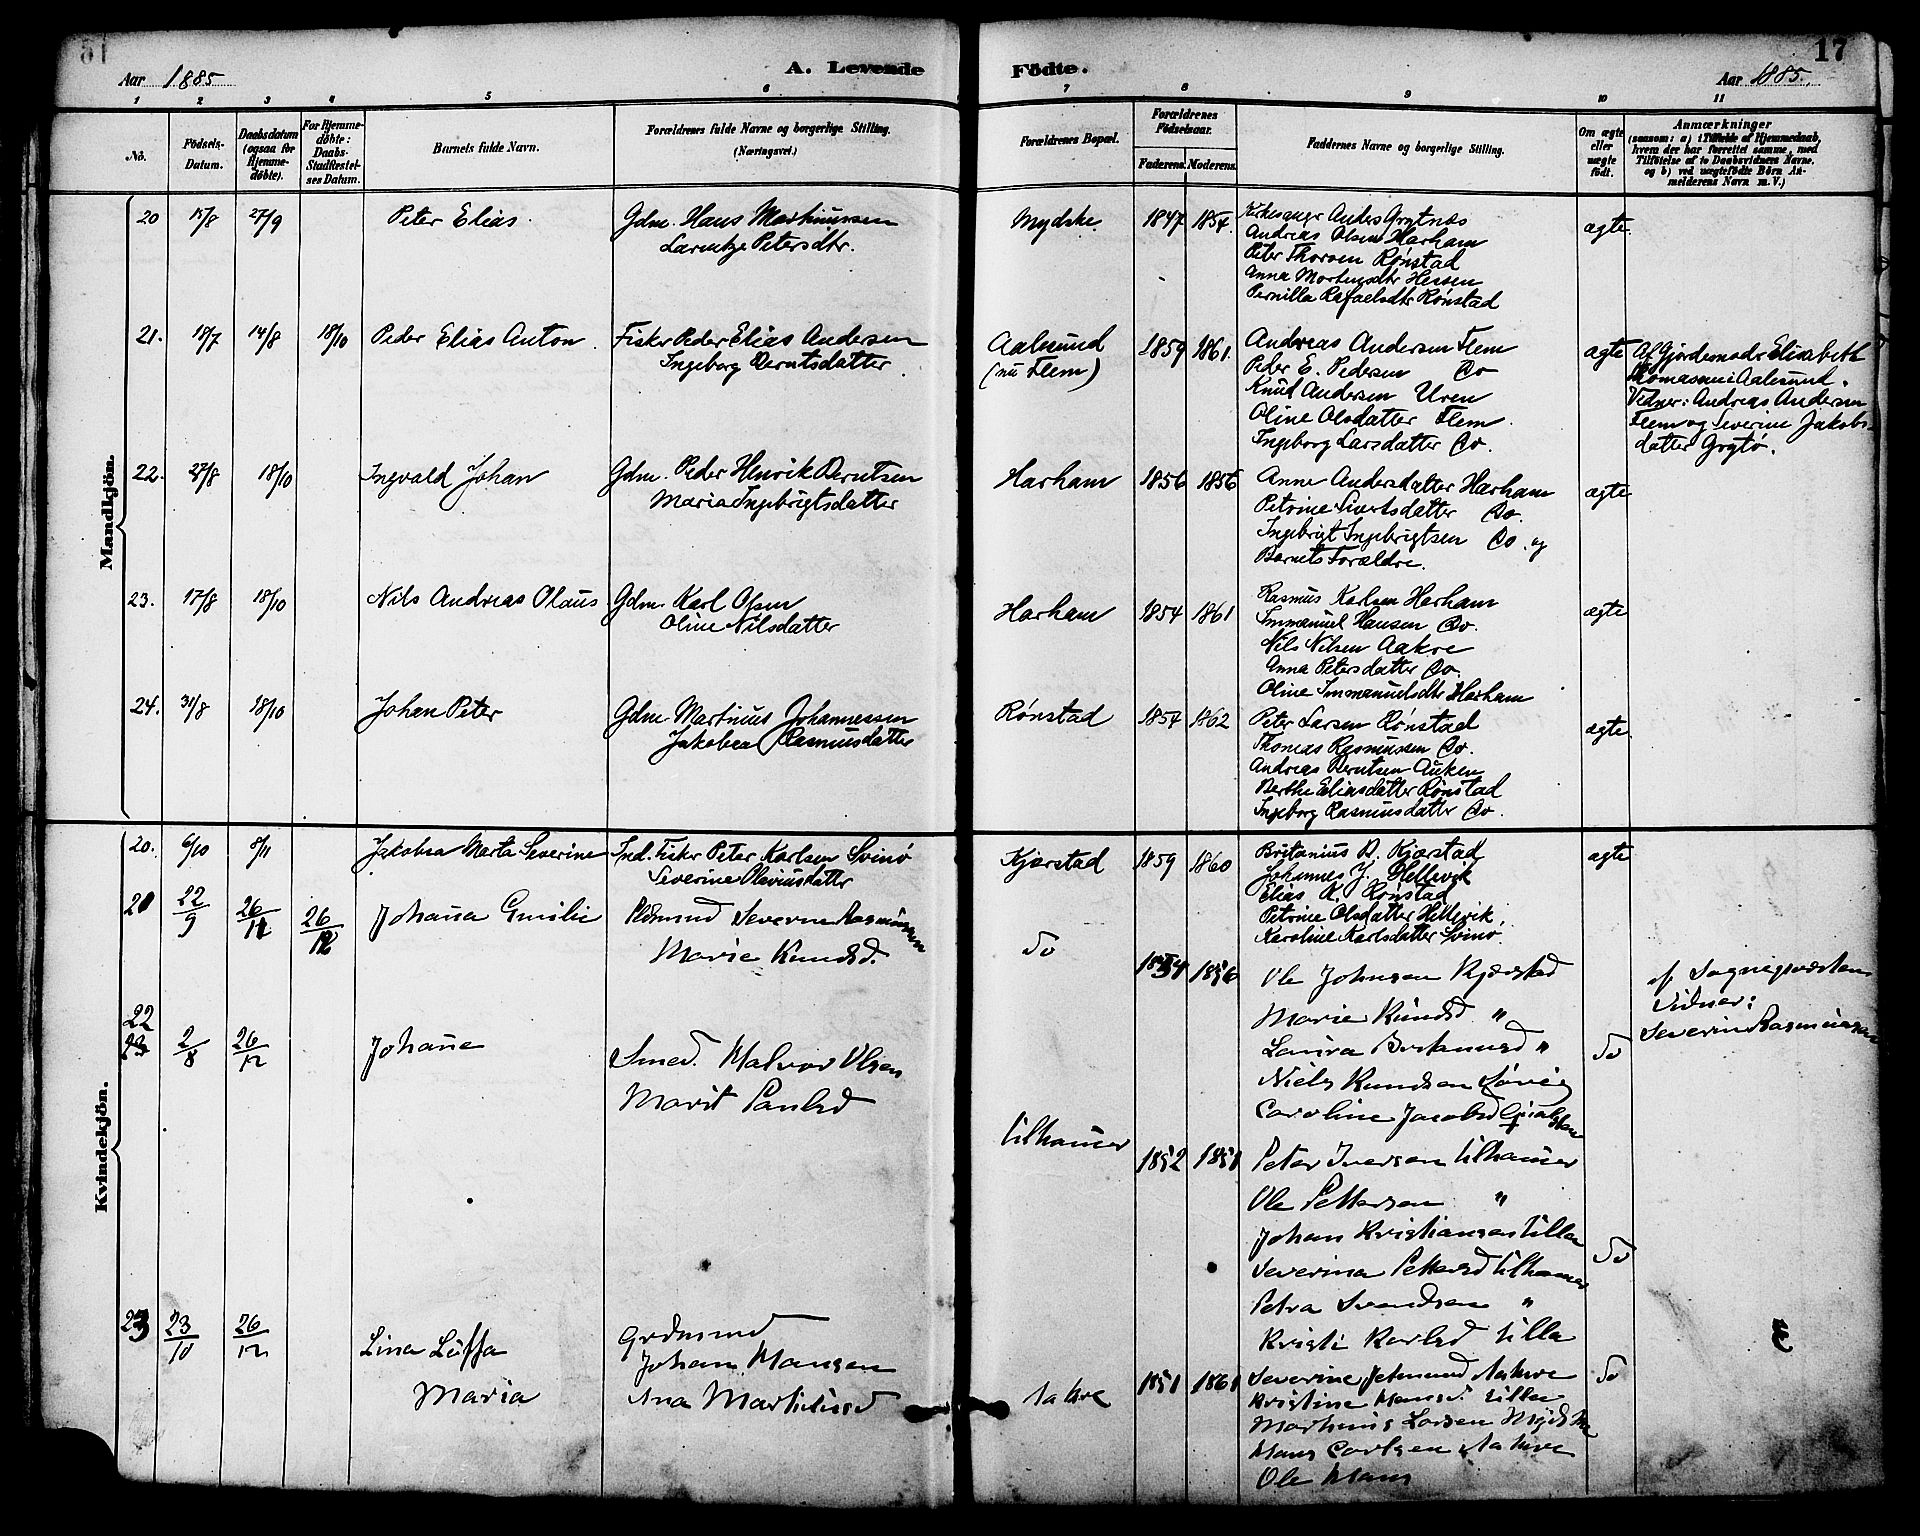 17
Aar 1885
A. Levende Fødte.
Aar 1885.
1 2 3 4 5 6 7 8 9 10 11
No.
Fødsels-Datum.
Daabsdatum (ogsaa for Hjemmedøbte).
For Hjemmedøbte: Daabs-Stadfæstelses Datum.
Barnets fulde Navn.
Forældrenes fulde Navne og borgerlige Stilling. (Næringsvei.)
Forældrenes Bopæl.
Forældrenes Fødselsaar.
Faderens. Moderens.
Faddernes Navne og borgerlige Stilling.
Om ægte eller uægte født.
Anmærkninger
(saasom: a) i Tilfælde af Hjemmedaab, hvem der har forrettet samme, med Tilføielse af to Daabsvidners Navne, og b) ved uægtefødte Børn Anmelderens Navn m. V.)
Mandkjön.
20 15/8 27/9 Peter Elias. Gdm. Hans Marthinussen
Larentze Petersdtr.
Mydske. 1847 1854.
Kirkesanger Anders Grytnæs
Andreas Olsen Harham
Peter Thorsen Rønstad
Anna Mortensdtr Hessen
Pernilla Rafaelsdtr Rønstad
ægte
21. 18/7 14/8 18/10 Peder Elias Anton. Fisker Peder Elias Andersen
Ingeborg Berntsdatter
Aalesund
(nu Flem)
1859 1861.
Andreas Andersen Flem
Peder E. Pedersen Do
Knud Andersen Uren
Oline Olsdatter Flem
Ingeborg Larsdatter Do.
ægte
Af Gjordemodr Elisabeth
Thomasen i Aalesund.
Vidner: Andreas Andersen
Flem og Severine Jakobs-
datter Grytø.
22. 27/8 18/10 Ingvald Johan Gdm. Peder Henrik Berntsen
Maria Ingebrigtsdatter
Harham 1856 1856
Anne Andersdatter Harham
Petrine Sivertsdatter Do.
Ingebrigt Ingebrigtsen Do. og
Barnets Forældre.
ægte
23. 17/8 18/10 Nils Andreas Olaus Gdm. Karl Olsen
Oline Nilsdatter
Harham 1854 1861
Rasmus Karlsen Harham
Immanuel Hansen Do.
Nils Nilsen Aakre
Anna Petersdatter Do.
Oline Immanuelsdtr Harham
ægte
24. 31/8 18/10 Johan Peter Gdm. Martinus Johannessen
Jakobea Rasmusdatter
Rønstad 1857 1862
Peter Larsen Rønstad
Thomas Rasmussen Do.
Andreas Berntsen Auken
Berthe Eliasdatter Rønstad
Ingeborg Rasmusdatter Do.
ægte
Kvindekjön.
20. 6/10 8/11 Jakobea Marta Severine Ind. Fisker Peter Karlsen Svinø
Severine Olaviusdatter
Kjærstad 1859 1860
Britanius D. Kjærstad
Johannes J. Hellevik
Elias K. Rønstad
Petrine Olsdatter Hellevik.
Karoline Karlsdatter Svinø.
ægte
21 22/9 26/11 26/12 Johana Emilie Severin Rasmussen
Marie Knudsd.
Do 1854 1856
Ole Johnsen Kjærstad
Marie Knudsd "
Laura "
Niels Knudsen Løvig
Caroline Jacobsd
Do
af Sognepræsten
Vidner:
Severin Rasmussen
22 2/8 26/12 Johane Smed. Halvor Olsen
Marit Paulsd
Ulhauer 1852 1851
Peter Iversen Ulhauer
Ole Pettersen "
Johan Kristiansen Ulla
Severina Pettersd Ulhauer
Petra Svendsen "
Kristi Karlsd Ulla
Do
23 23/10 26/12 Lina Luffa
Maria
Grdmand
Johan Hansen
Ana Martinusd
Aakre 1851 1861
Severine Aakre
Kristine Hansd. Ulla
Marthinus Larsen Mydske
Hans Carlsen Aakre
Ole Hans
Do